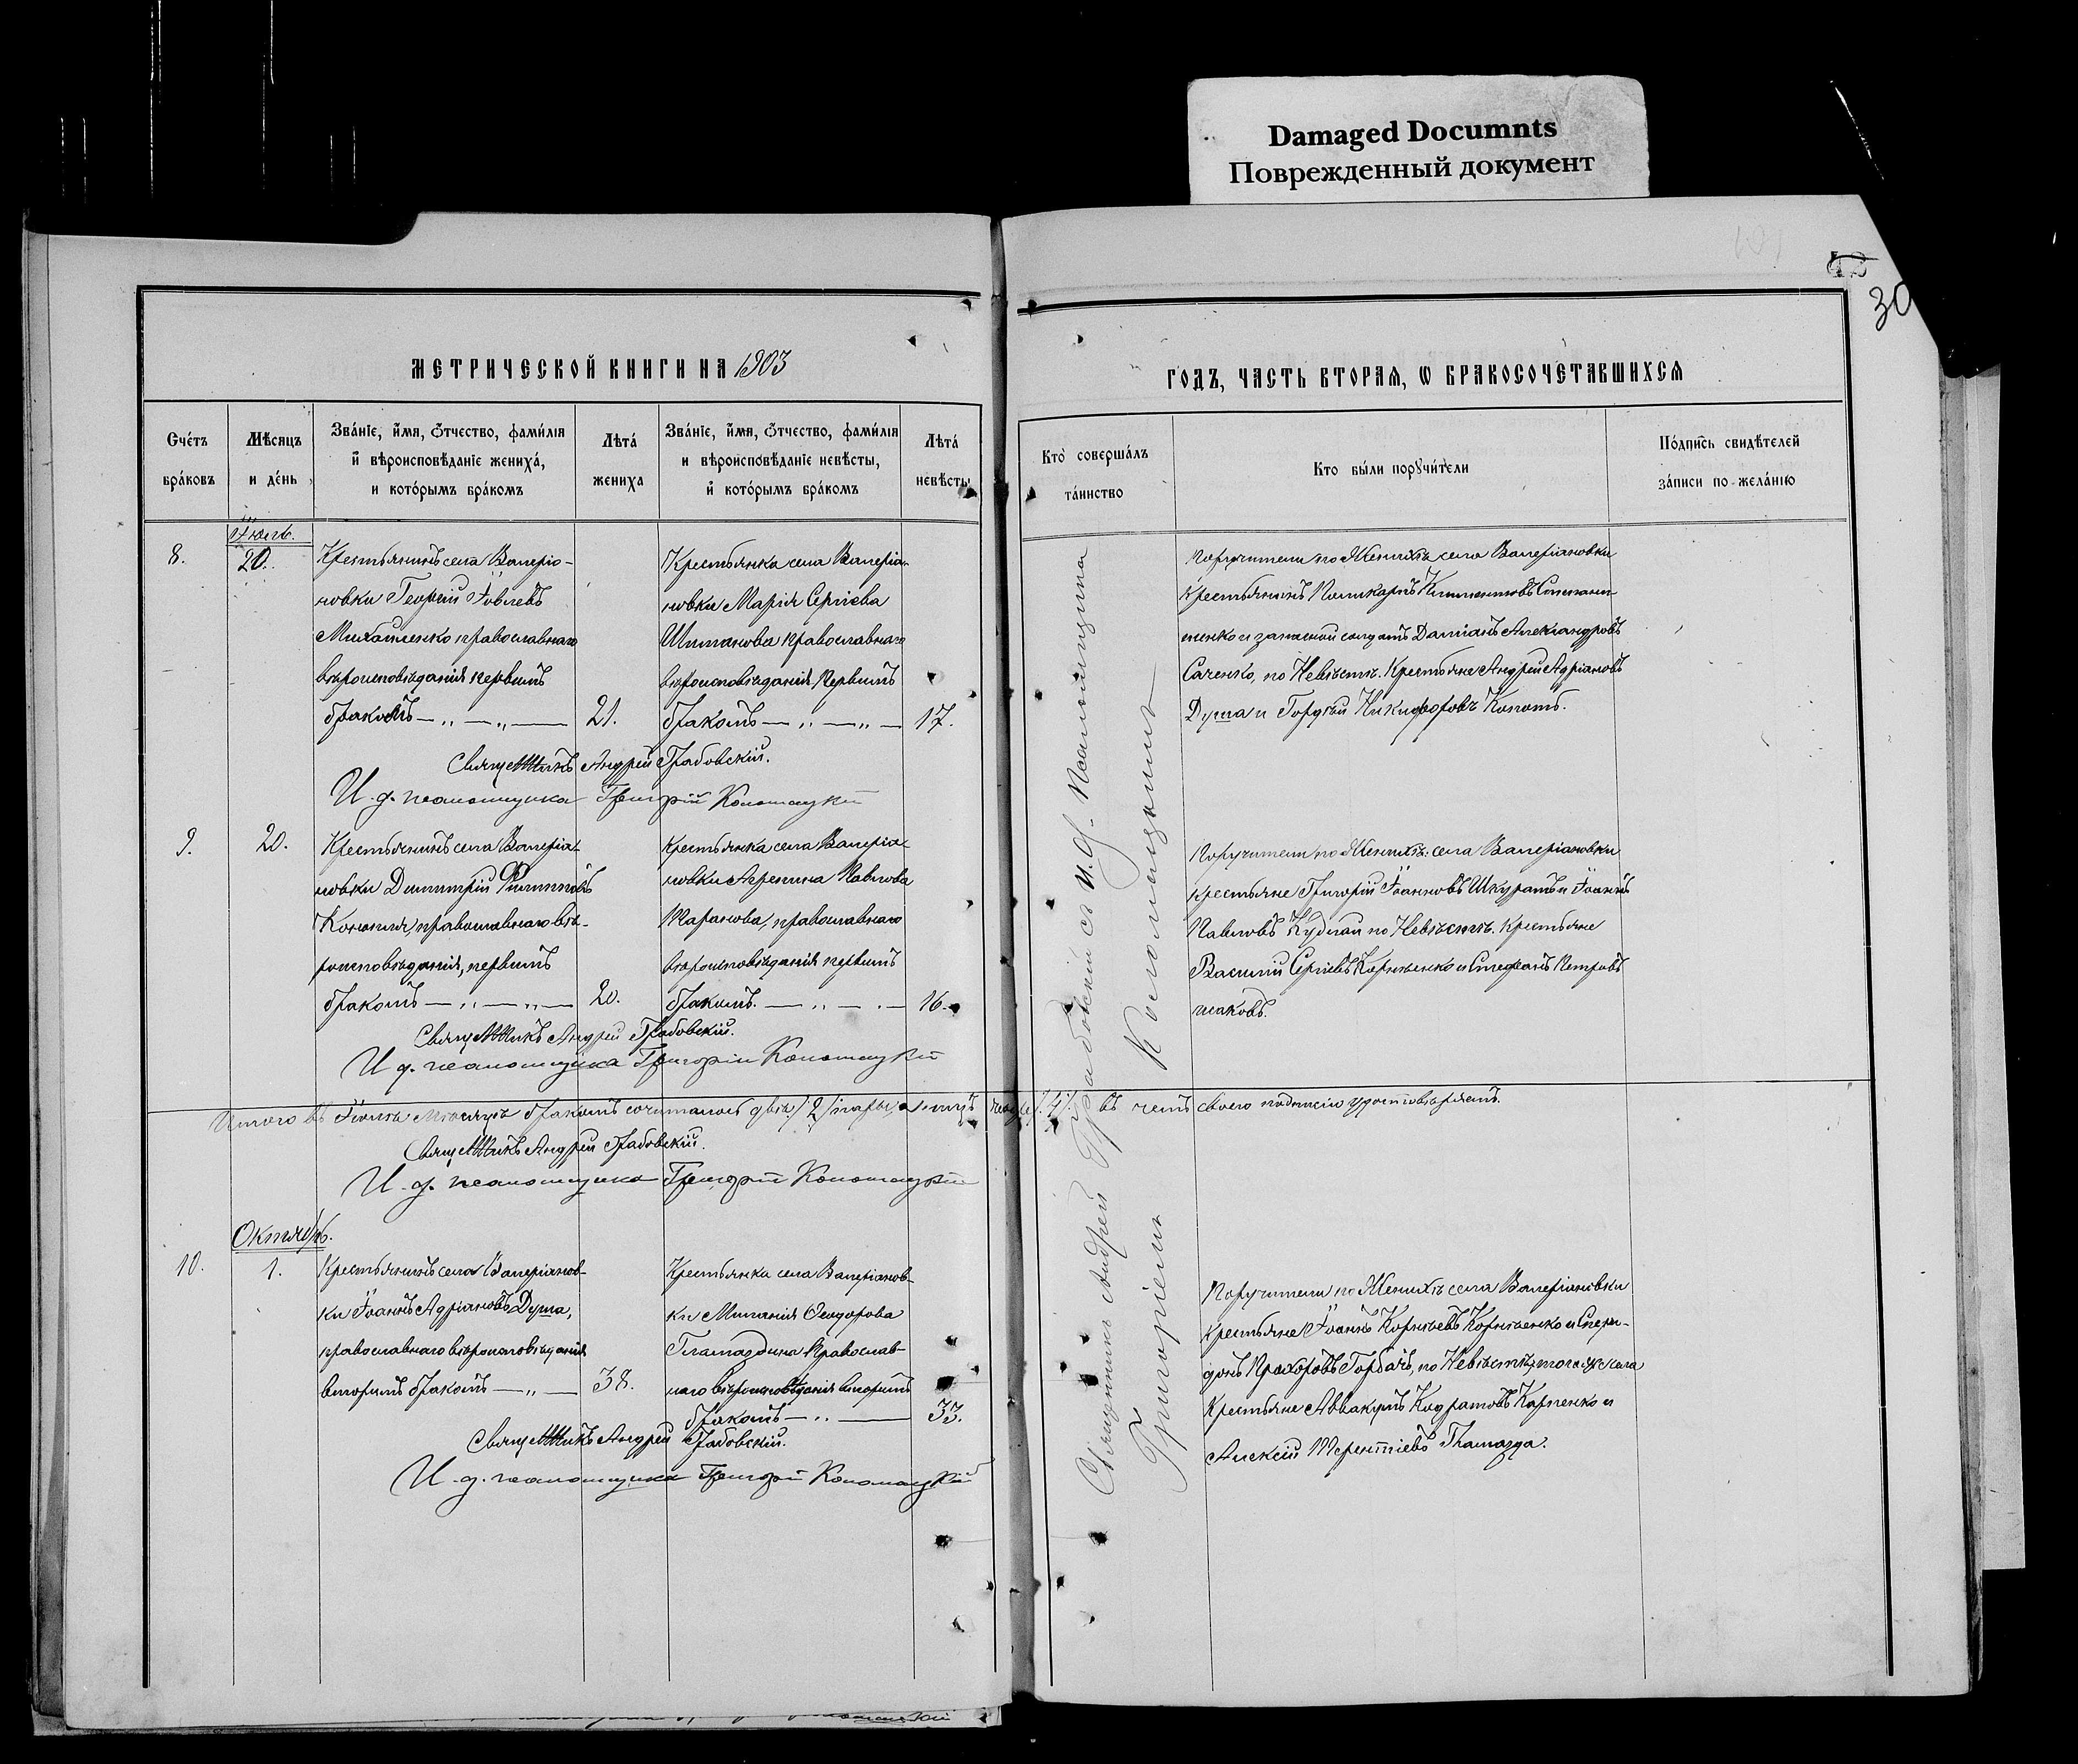 Damaged Documnts
Поврежденный документ
48
30
МЕТРИЧЕСКОЙ КНИГИ НА 1903
ГОДЪ, ЧАСТЬ ВТОРАЯ, Ѡ БРАКОСОЧЕТАВШИХСЯ
Счетъ браковъ
Мѣсяцъ и день
Званіе, имя, ѿчество, фамилія
и вѣроисповѣданіе жениха,
и которымъ бракомъ
Лѣта жениха
Званіе, имя, ѿчество, фамилія
и вѣроисповѣданіе невѣсты,
и которымъ бракомъ
Лѣта невѣсты
Кто совершалъ таинство
Кто были поручители
Подпись свидѣтелей
записи по желанію
8.
Іюль.
20.
Крестьянинъ села Валеріа-
новки Георгій Іовлевъ
Михайленко православнаго
вѣроисповѣданія первымъ
бракомъ — „ — „ —
21.
Крестьянка села Валеріа-
новки Марія Сергіева
православнаго
вѣроисповѣданія, первымъ
бракомъ — „ — „ —
17.
Поручители по Женихѣ села Валеріановки
крестьянинъ Поликарпъ
и запасной солдатъ Даміанъ Александровъ
Саченко, по Невѣстѣ. Крестьяне Андрей Адріановъ
Душа и Гордѣй Никифоровъ Копотъ.
Священникъ Андрей Грабовскій.
И. д. псаломщика Григорій Коломацкій
9.
20.
Крестьянинъ села Валеріа-
новки Димитрій Филипповъ
православнаго вѣ-
роисповѣданія, первымъ
бракомъ — „ — „ —
20.
Крестьянка села Валеріа-
новки Агрепина Павлова
Таранова, православнаго
вѣроисповѣданія первымъ
бракомъ. — „ — „ —
16.
Поручители по Женихѣ: села Валеріановки
крестьяне Григорій Іоанновъ Шкуратъ и Іоаннъ
Павловъ Кудлай по Невѣстѣ. Крестьяне
Василій Сергіевъ Корніенко и Стефанъ Петровъ
Священникъ Андрей Грабовскій.
И. д. псаломщика Григорій Коломацкій
Итого въ Іюлѣ мѣсяцѣ бракомъ сочиталось двѣ /2/ пары, а лицъ /4/. въ чемъ своею подписью удостовѣряемъ.
Священникъ Андрей Грабовскій.
И. д. псаломщика Григорій Коломацкій
Октябрь.
10.
1.
Крестьянинъ села Валеріанов-
ки Іоаннъ Адріановъ Душа,
православнаго вѣроисповѣданія
вторымъ бракомъ — „ —
38.
Крестьянка села Валеріанов-
ки Миланія Ѳеодорова
Гламаздина Православ-
наго вѣроисповѣданія вторымъ
бракомъ — „ —
33.
Поручители по Женихѣ села Валеріановки
крестьяне Іоаннъ Корніевъ Корніенко и Спири-
донъ Прохоровъ Горбачъ, по Невѣстѣ, того же села
Крестьяне Аввакумъ Кодратовъ Карпенко и
Алексій Терентіевъ Гламазда.
Священникъ Андрей Грабовскій.
И. д. псаломщика Григорій Коломацкій
Священникъ Андрей Грабовскій съ И. д. Псаломщика
Григоріемъ Коломацкимъ